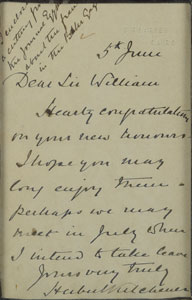 5th June
Dear Sir William
Hearty congratulations
on your new honours.
I hope you may
long enjoy them &
perhaps we may
meet in July when
I intend to take leave
Yours very truly
Herbert Kitchener
I enclose
a cutting from
about the
in the